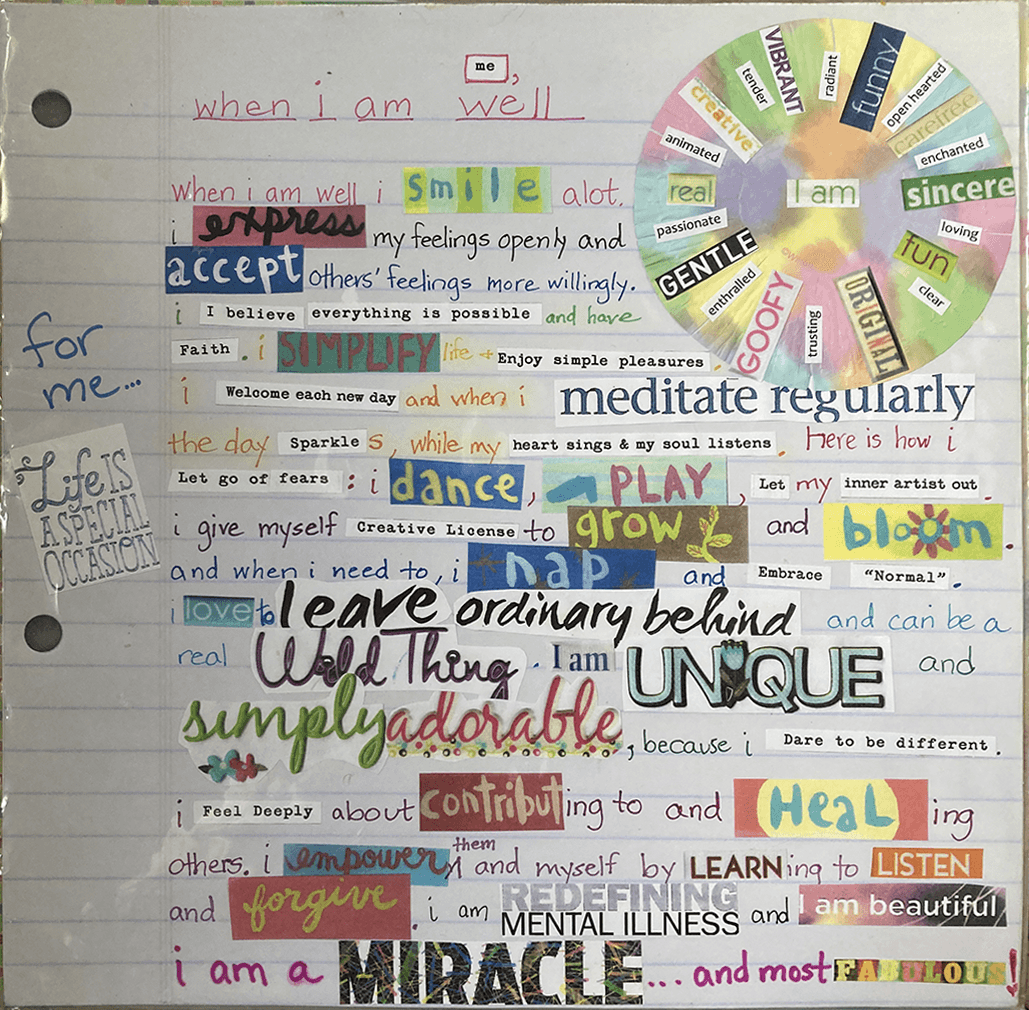 me,
when i am well
when i am well i smile alot.
i express my feelings openly and
accept others' feelings more willingly.
i I believe everything is possible and have
Faith. i SIMPLIFY life + Enjoy simple pleasures.
i Welcome each new day and when i meditate regularly
the day Sparkle s, while my heart sings & my soul listens. Here is how i
Let go of fears: i dance, PLAY, Let my inner artist out.
i give myself Creative License to grow and bloom.
and when i need to, i nap and Embrace "Normal".
i love to leave ordinary behind and can be a
real Wild Thing. I am UNIQUE and
simply adorable, because i Dare to be different.
i Feel Deeply about contributing to and HEALing
others. i empower them and myself by LEARNing to LISTEN
and forgive. i am REDEFINING MENTAL ILLNESS and I am beautiful
i am a MIRACLE... and most FABULOUS!
for
me...
Life IS
A SPECIAL
OCCASION
I am
VIBRANT
radiant
funny
open hearted
carefree
enchanted
sincere
loving
fun
clear
ORIGINAL
trusting
GOOFY
enthralled
GENTLE
passionate
real
animated
creative
tender